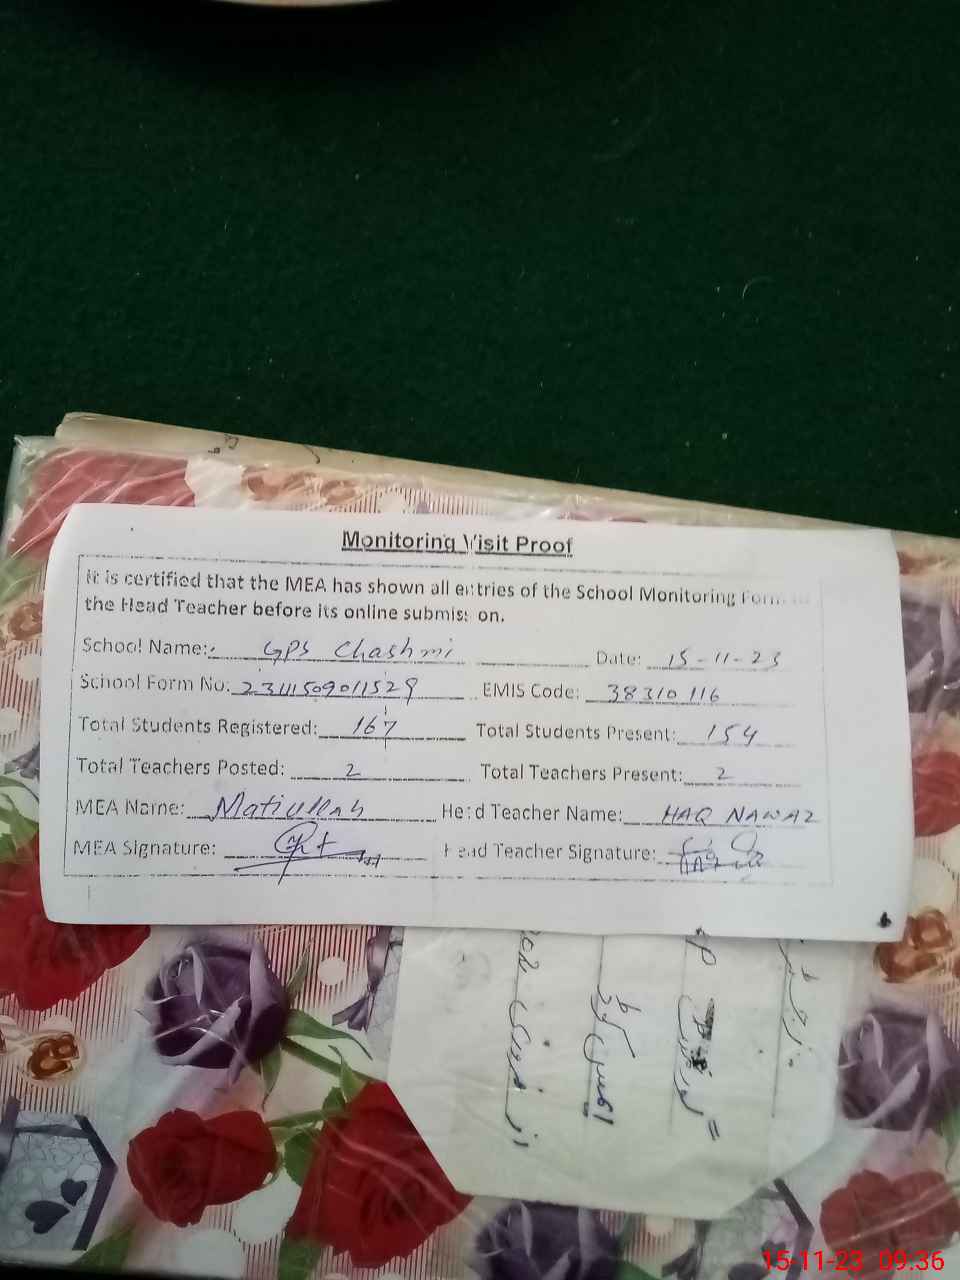 Monitoring Visit Proof
It is certified that the MEA has shown all entries of the School Monitoring Form to
the Head Teacher before its online submission.
School Name: GPS Chashmi Date: 15-11-23
School Form No: 23111509011529 EMIS Code: 38310116
Total Students Registered: 167 Total Students Present: 154
Total Teachers Posted: 2 Total Teachers Present: 2
MEA Name: Matiullah Head Teacher Name: HAQ NAWAZ
MEA Signature: Head Teacher Signature:
15-11-23 09:36